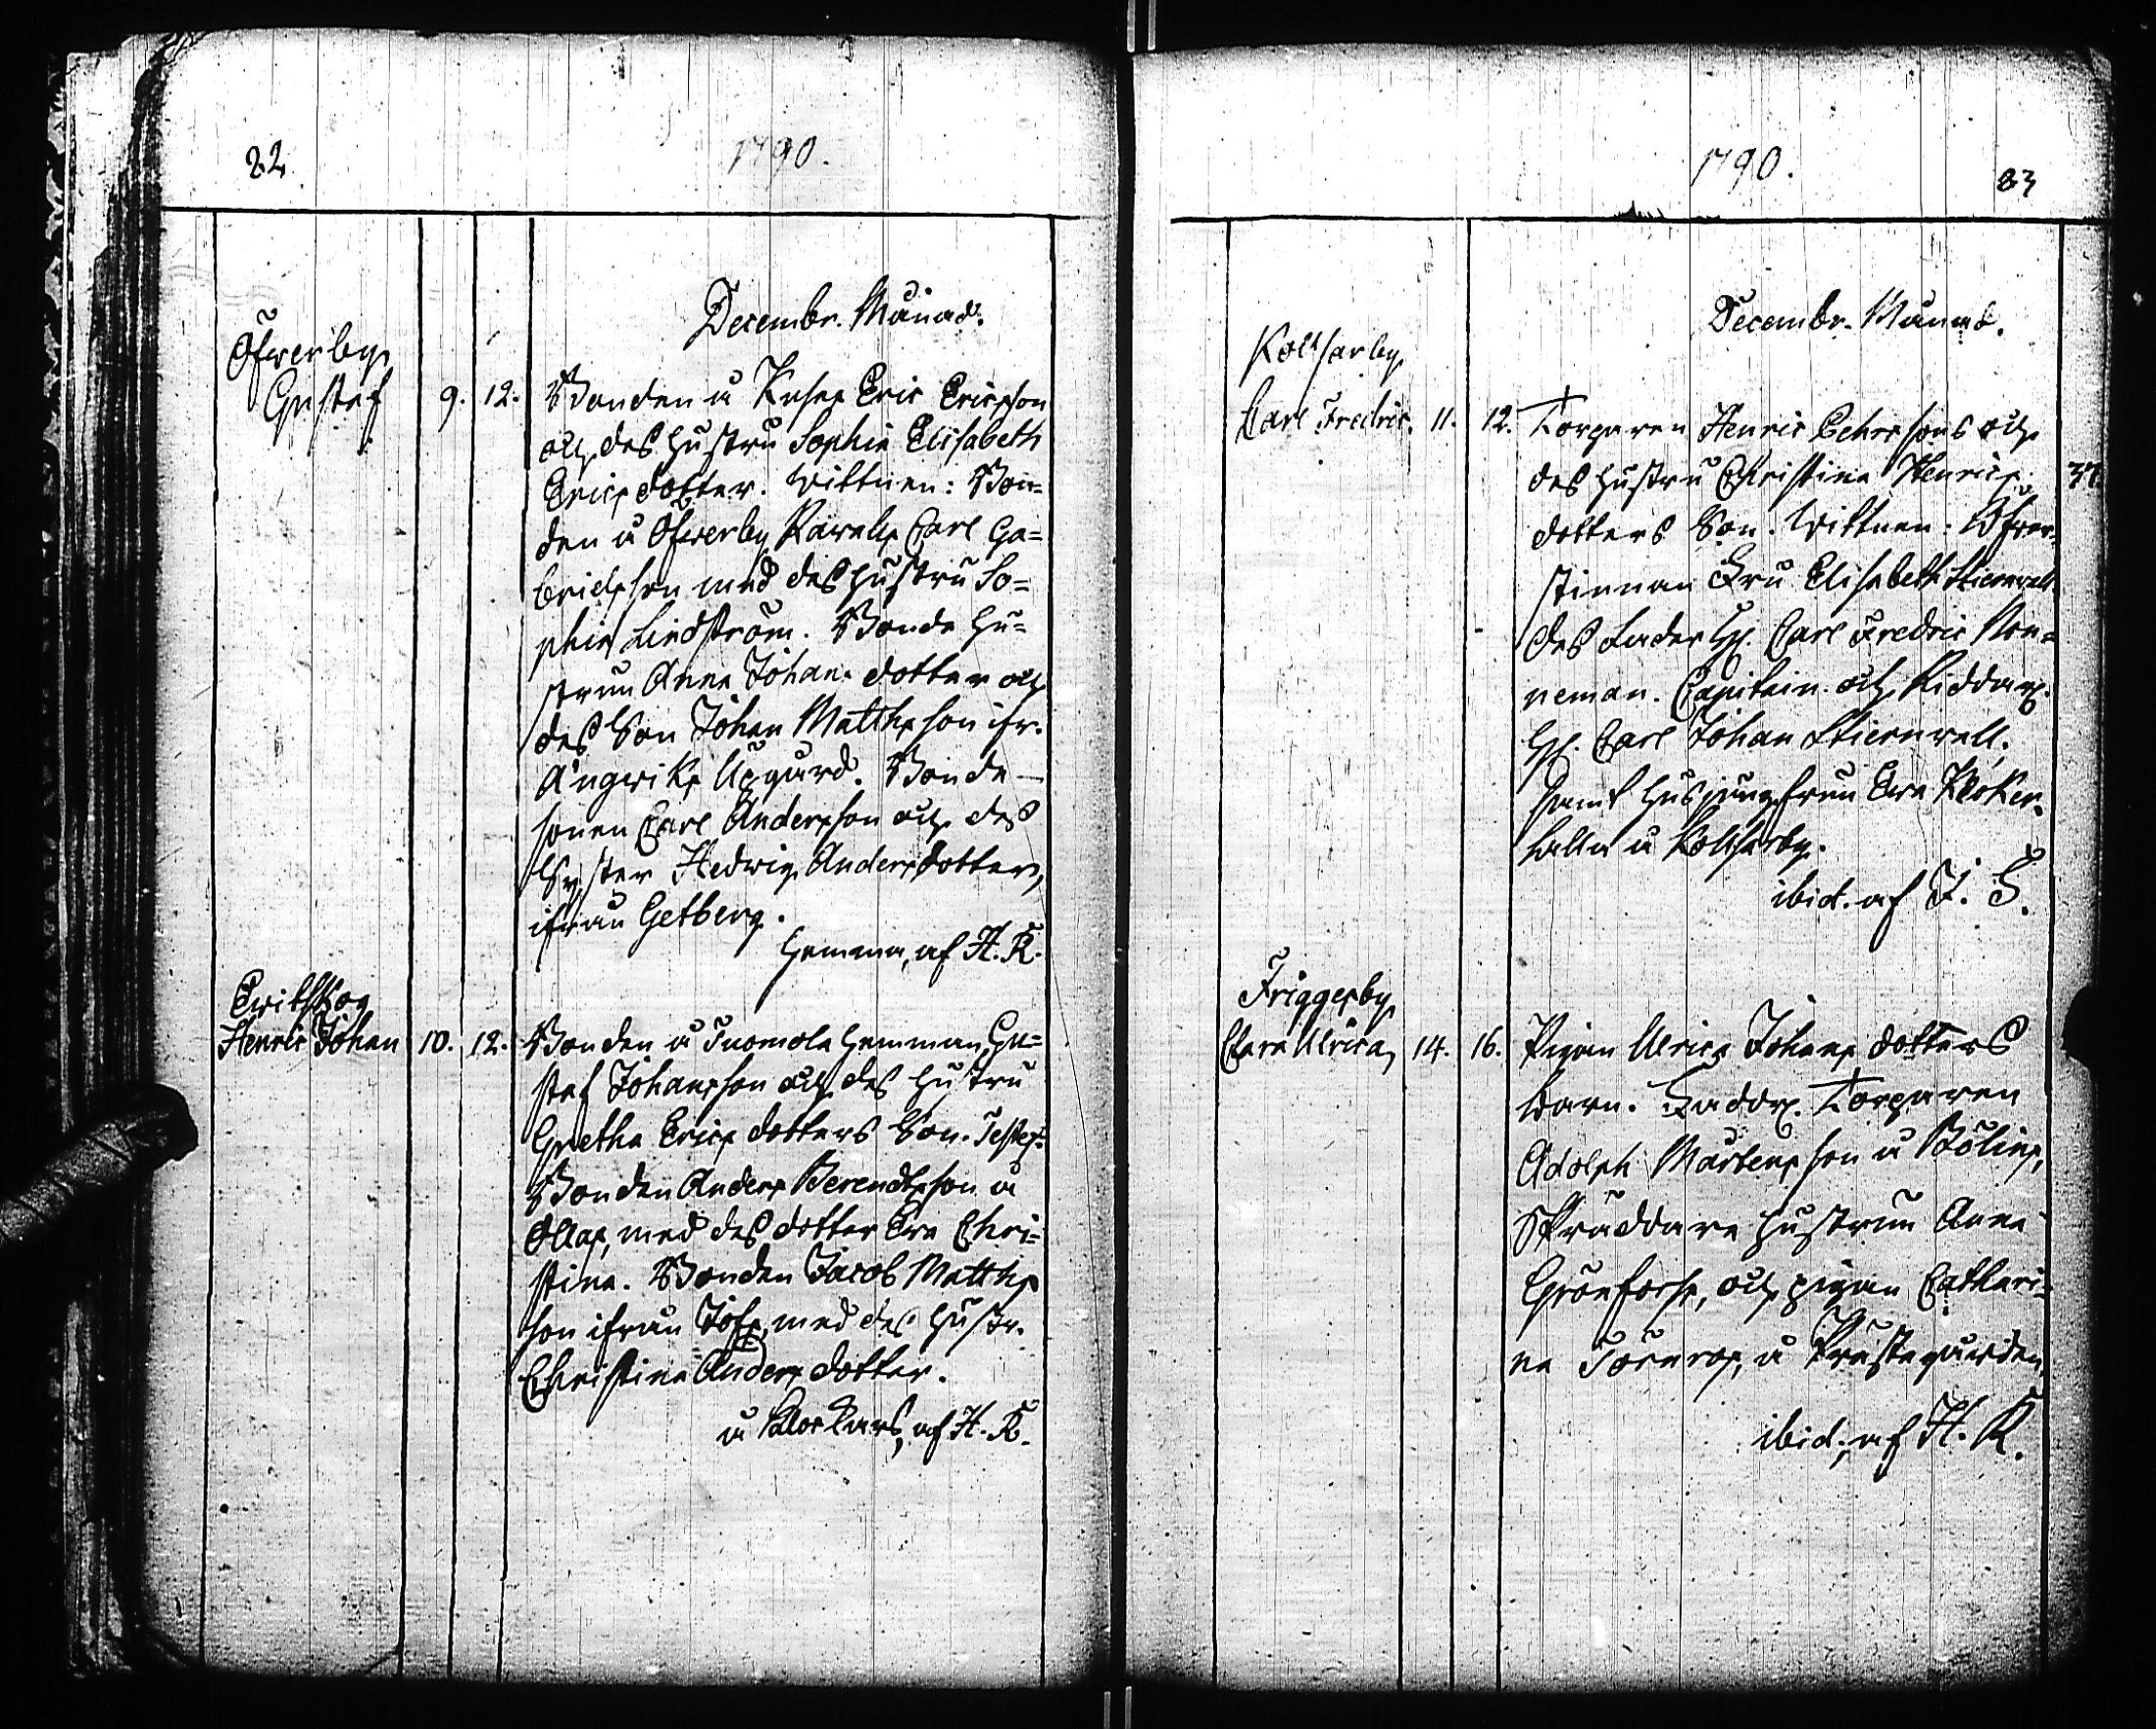 82
1790.
Decembr. Månad.
Öfwerby
Gustaf 9. 12. Bonden å Kusas Eric Ericsson
och dess hustru Sophia Elisabeth
Ericsdotter. Wittnen: Bon=
den å Öfwerby Rawals Carl Ga=
brielsson med dess hustru So=
phia Lindström. Bonde Hu=
strun Anna Johans dotter och
dess Son Johan Matthsson ifr.
Ångwiks Upgård. Bonde
sonen Carl Andersson och dess
Syster Hedwig Andersdotter,
ifrån Getberg.
Hemma, af H. R.
Ewitskog
Henric Johan 10. 12. Bonden å Tuomola hemman Gu=
staf Johansson och dess hustru
Gretha Erics dotters Son. Test:
Bonden Anders Berendtsson å
Ollas, med dess dotter Eva Chri=
stina. Bonden Jacob Matths
son ifrån Jofs, med dess hustr.
Christina Anders dotter.
å Klockars, af H. R.
1790.
83
Decembr. Månad.
Kollsarby
Carl Fredric. 11. 12. Torparen Henric Behrssons och
dess hustru Christina Henrics
37
dotters Son. Wittnen: Öfwer
stinnan Fru Elisabeth Stiernvall
dess Fader H. Carl Fredric Non=
neman. Capitain och Riddar.
H. Carl Johan Stiernvall,
samt Husjungfrun Eva
å Kollsarby.
ibid. af
Friggesby
Clara Ulrica, 14. 16. Pigan Ulrica Johans dotters
barn. Faddr. Torparen
Adolph Mårtensson å Böling,
Skräddare hustrun Anna
Grönfors, och pigan Cathari=
na Törnros, å Prästegården,
ibid; af H. R.